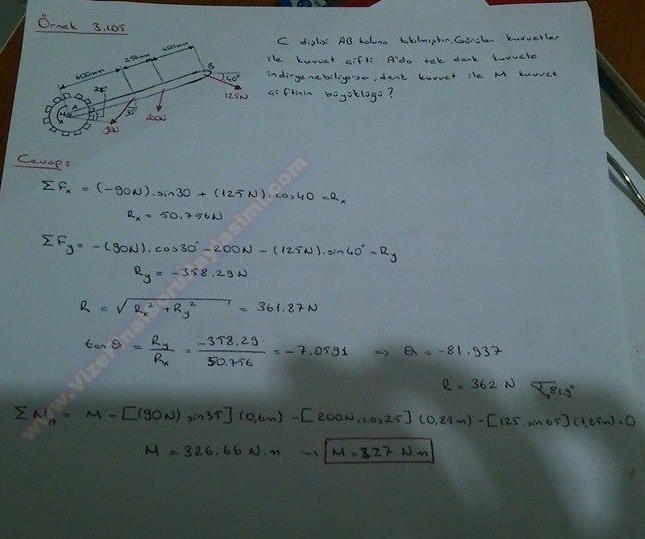 Örnek 3.105
C dişlisi AB koluna takılmıştır. Görülen kuvvetler
ile kuvvet çifti A'da tek denk kuvvete
indirgenebiliyorsa, denk kuvvet ile M kuvvet
çiftinin büyüklüğü?
600mm
250mm
400mm
25°
A
M
B
40°
125N
200N
90N
Cevap:
ΣFx = (-90N).sin30 + (125N).cos40 = Rx
Rx = 50.756N
ΣFy = -(90N).cos30° - 200N - (125N).sin40° = Ry
Ry = -358.29N
R = √Rx² + Ry² = 361.87N
tanθ = Ry/Rx = -358.29/50.756 = -7.0591 ⇒ θ = -81.937
R = 362 N 81.9°
ΣMA = M - [(90N) sin35] (0,6m) - [200N.cos25] (0,85m) - [125.sin65] (1,25m) = 0
M = 326.66 N.m → M = 327 N.m
www.VizeFinalSoruPaylasimi.com